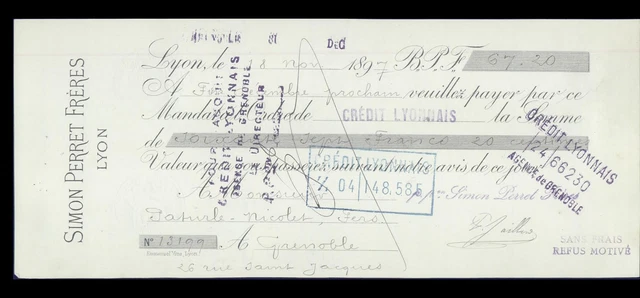 31 DEC
Lyon, le 18 Nov 1897 B.P.F. 67.20
A Fin prochain veuillez payer par ce
Mandat CRÉDIT LYONNAIS la Somme
de Soixante Sept Francs 20 c
Valeur suivant notre avis de ce jour
A Simon Perret
Faturle-Nicolet, Fers
Nº 13199 A Grenoble
26 rue Saint Jacques
SIMON PERRET FRÈRES
LYON
POUR ACQUIT
CREDIT LYONNAIS
AGENCE DE GRENOBLE
LE DIRECTEUR
CRÉDIT LYONNAIS
04 148.585
CRÉDIT LYONNAIS
04/66230
AGENCE de GRENOBLE
SANS FRAIS
REFUS MOTIVÉ